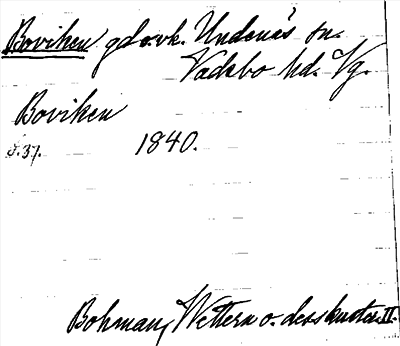 Boviken gd o. vk. Undenäs sn.
Vadsbo hd. Vg.
Boviken
s. 37. 1840.
Bohman, Wettern o. dess kuster. II.